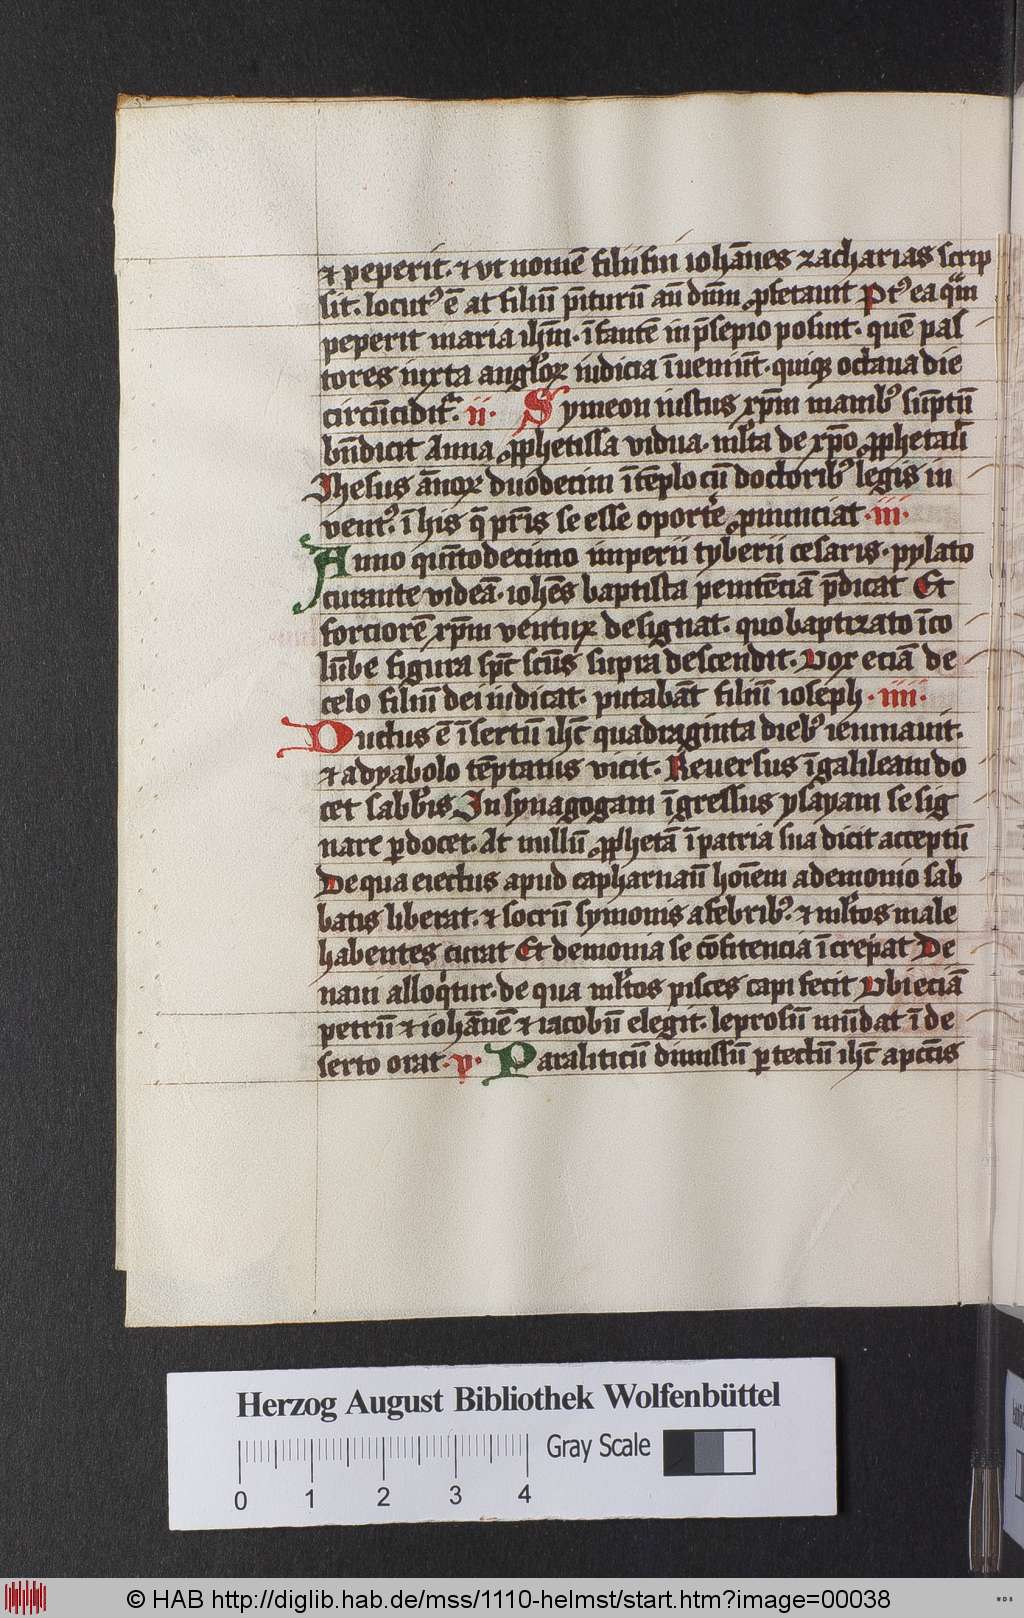 ⁊ peperit. ⁊ vt nomē filii sui iohānes zacharias scrip
sit. locut⁹ ē at filiū p̄iturū an̄ dn̄m ꝓfetauit Pt⁹ ea qm̄
peperit maria ih̄m. īfantē in p̄sepio posuit. quē pas
tores iuxta angl̓oꝝ iudicia īueniūt. quiqꝫ octaua die
circūcidit̉. ii. Symeon iustus xp̄m manib⁹ sūptū
bn̄dicit Anna ꝓphetissa vidua. ml̓ta de xp̄o ꝓphetauit
Jhesus ānoꝝ duodecim ī tēplo cū doctorib⁹ legis in
vent⁹. ī his q̄ pr̄is se esse oportē ꝓnunciat .iii.
Anno quīntodecimo imperii tyberii cesaris. pylato
curante videā. iohēs baptista penitēciā p̄dicat Et
forciorē xp̄m ventuꝝ designat. quo baptizato ī co
lūbe figura sp̄c sc̄us supra descendit. Vox eciā de
celo filiū dei iudicat. putabāt filiū ioseph .iiii.
Ductus ē ī sertū ih̄c quadraginta dieb⁹ ieiunauit.
⁊ a dyabolo tēptatus vicit. Reuersus ī galileam do
cet sabb̓is. In synagogam īgressus ysayam se sig
nare ꝑdocet. At nullū ꝓphetā ī patria sua dicit acceptū
De qua eiectus apud capharnaū hoīem a demonio sab
batis liberat. ⁊ socrū symonis a febrib⁹. ⁊ ml̓tos male
habentes curat Et demonia se cōfitencia īcrepat De
naui alloq̓tur. de qua ml̓tos pisces capi fecit Vbi eciā
petrū ⁊ iohānē ⁊ iacobū elegit. leprosū mūdat ī de
serto orat. p. Paraliticū dimissū ꝑ tectū ih̄c a pctīs
Herzog August Bibliothek Wolfenbüttel
Gray Scale
0 1 2 3 4
© HAB http://diglib.hab.de/mss/1110-helmst/start.htm?image=00038